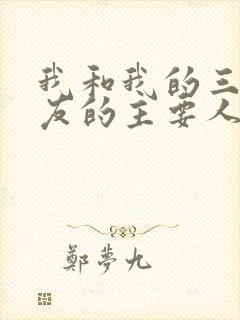 我和我的三
友的主要人
鄭夢九